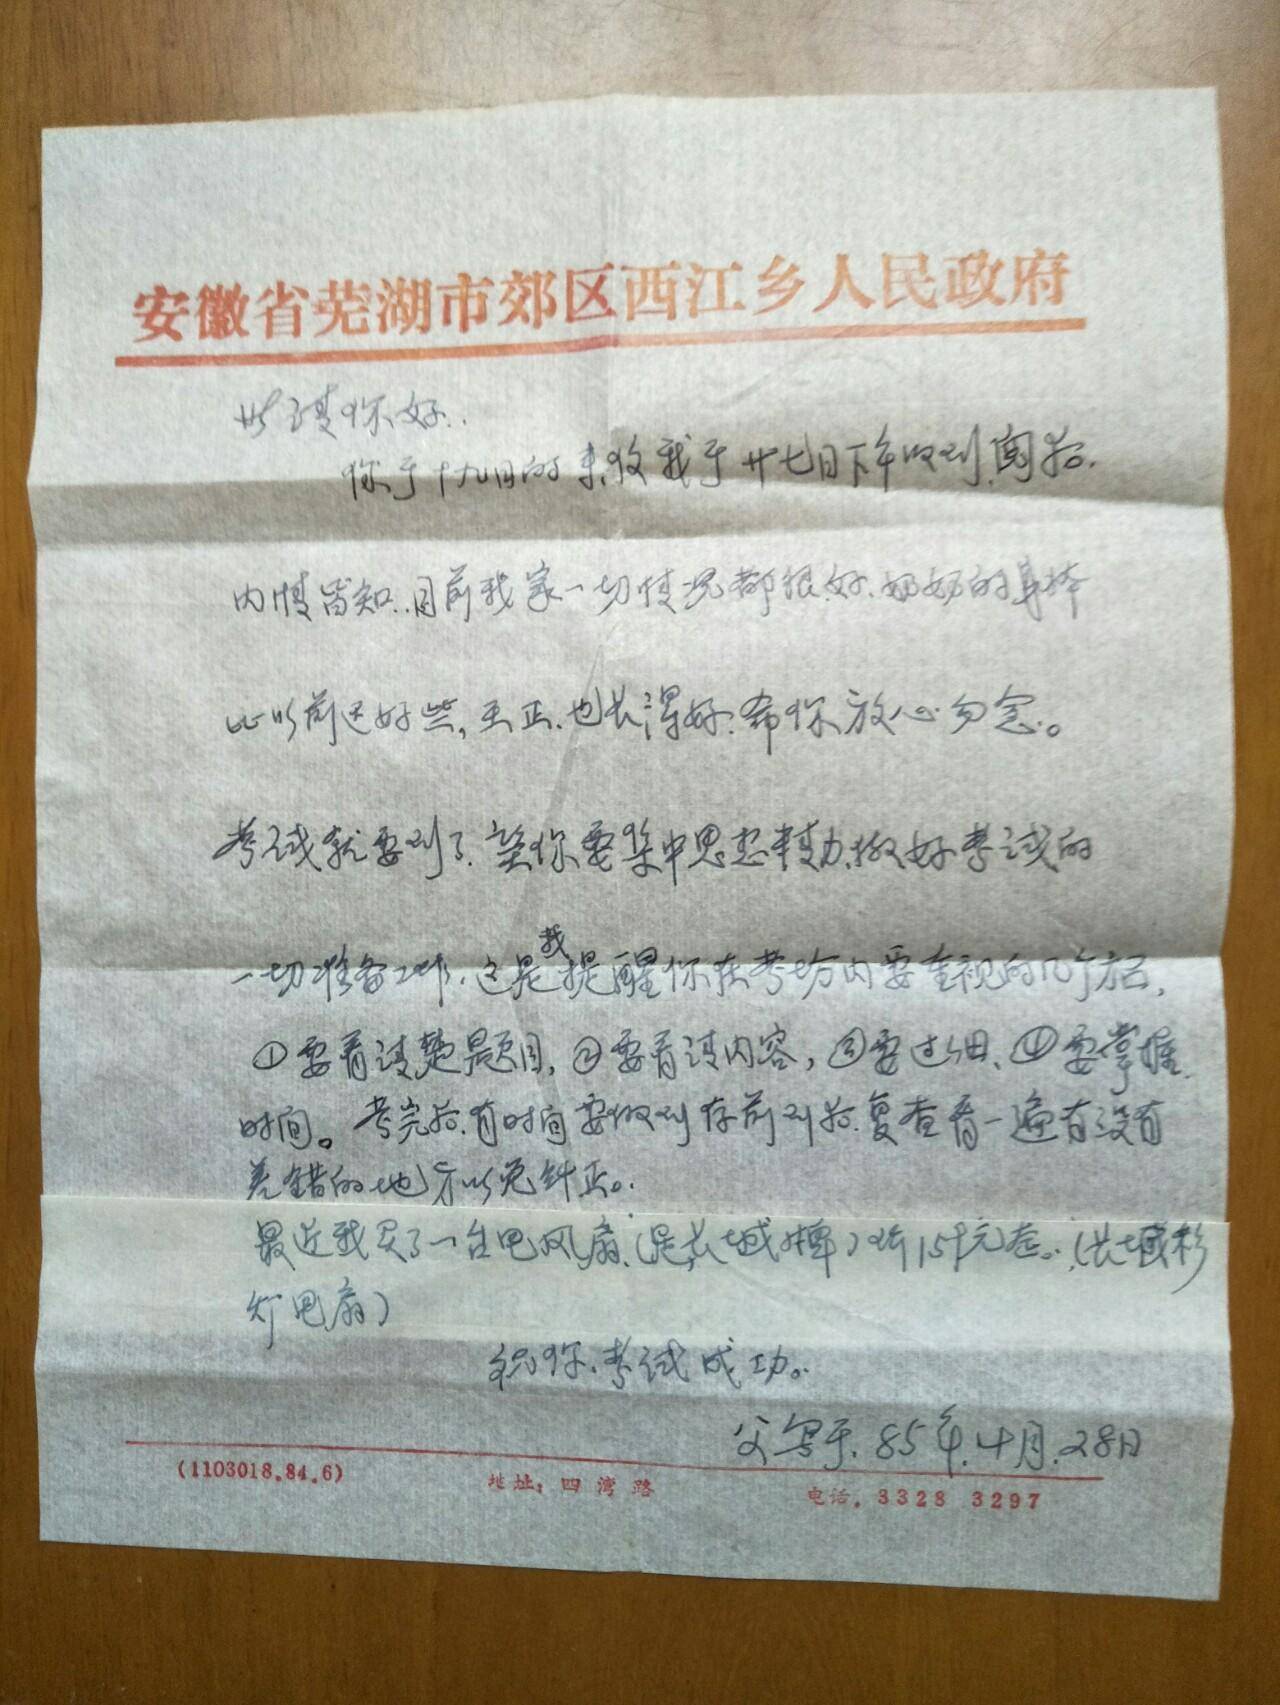 安徽省芜湖市郊区西江乡人民政府
你好.
你于十九日的来收我于廿七日下午收到.阅后.
内情皆知.目前我家一切情况都很好.奶奶的身体
比以前还好些,正.也长得好.希你放心勿念。
考试就要到了.望你要集中思想精力.做好考试的
一切准备工作.这是我提醒你在考场内要重视的几个方面,
①要看清楚题目,②要看清内容,③要过细、④要掌握
时间。考完后.有时间要做到存前到后.复查看一遍有没有
差错的地方以免纠正。
最近我买了一台电风扇.(是长城牌)154元左。.(长城
灯电扇)
祝你.考试成功。
父写于.85年.4月.28日
(1103018.84.6)
地址:四湾路
电话.3328 3297